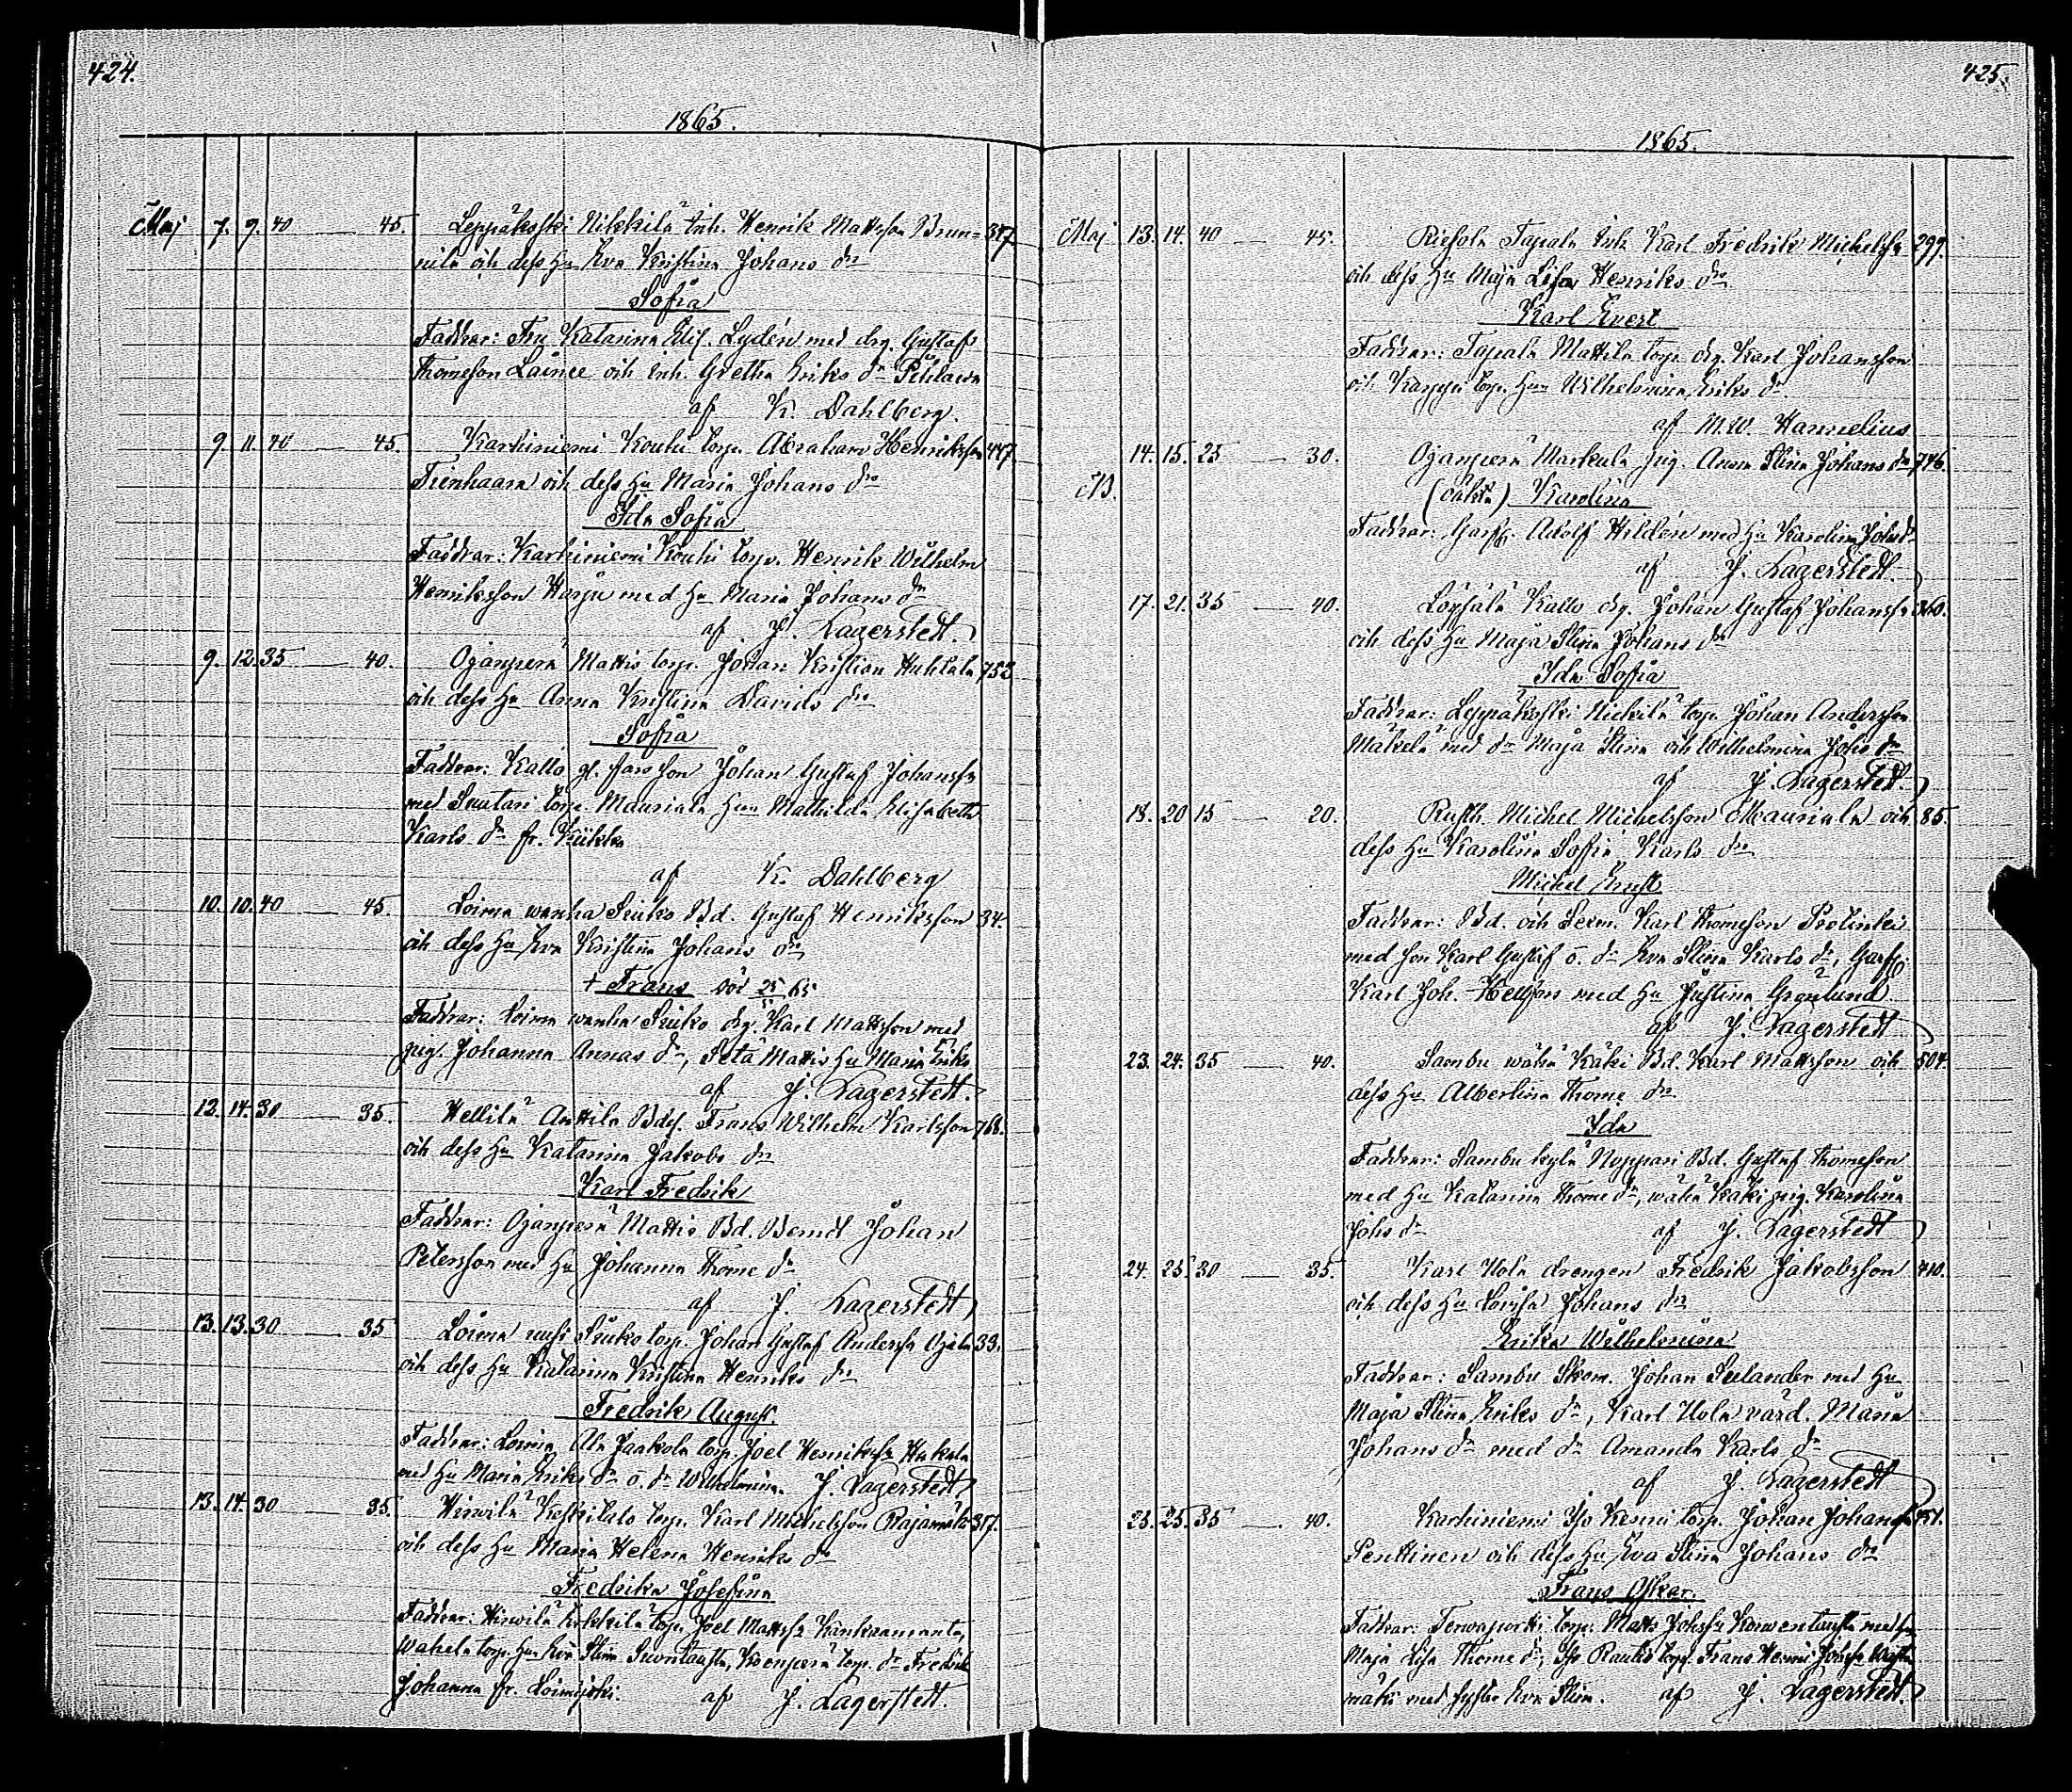 424.
1865.
Maj 7. 9. 40 — 45. Leppäkoski Nikkilä Inh. Henrik Mattsson Brun= 377.
nila och dess Hu Eva Kristina Johans dr
Sofia
Faddrar: Fru Katarina Elis. Lydén med drg. Gustaf
Thomeson Lainee och Inh. Gretha Eriks dr Pihlava
af K. Dahlberg.
9. 11. 40 — 45. Karhiniemi Kouhi torp. Abraham Henriksson 447.
Tienhaara och dess Hu Maria Johans dr
Ida Sofia
Faddrar: Karhiniemi Kouhi torp. Henrik Wilhelm
Henriksson Harju med Hu Maria Johans dr
af J. Lagerstedt.
9. 12. 35 — 40. Ojanperä Mattis torp. Johan Kristian Huhtala 752
och dess Hu Anna Kristina Davids dr
Sofia
Faddrar: Kallo gl. Johan Gustaf Johanss.
med Suutari torp. Mauriala Hun Mathilda Elisabeth
Karls dr fr.
af K. Dahlberg
10. 10. 40 — 45. Loima wanha Seuko Bd. Gustaf Henriksson 34.
och dess Hu Eva Kristina Johans dr
+ Frans död 25/5 65
Faddrar: Loima wanha Seuko drg. Karl Mattsson med
pig. Johanna Annas dr, Mattis Hu Maria Eriks
af J. Lagerstedt.
12. 14. 30 — 35. Hellilä Anttila Bds. Frans Wilhelm Karlsson 768.
och dess Hu Katarina Jakobs dr
Karl Fredrik
Faddrar: Ojanperä Mattis Bd. Berndt Johan
Petersson med Hu Johanna Thome dr
af J. Lagerstedt
13. 13. 30 — 35 Loima uusi Seuko torp. Johan Gustaf Anderss. Ojala 33.
och dess Hu Katarina Kristina Henriks dr
Fredrik August.
Faddrar: Loima Ala Jaakola torp. Joel Henrikss. Hakala
med Hu Maria Eriks dr o. dr Wilhelmina. J. Lagerstedt
13. 14. 30 — 35. Hirvilä Keskitalo torp. Karl Michelsson Rajamäki 317.
och dess Hu Maria Helena Henriks dr
Fredrika Josefina
Faddrar: Hirvilä torp. Joel Mattss. Kankaanranta,
torp. Hun Eva Stina torp. dr Fredrika
Johanna fr. Loimijoki. af J. Lagerstedt.
425.
1865.
Maj 13. 14. 40 — 45. Riesola Tapala Inh. Karl Fredrik Michelss. 299.
och dess Hu Maja Lisa Henriks dr
Karl Evert
Faddrar: Tapala Mattila torp. drg. Karl Johansson
och torp. Hun Wilhelmina Eriks dr
af M.W. Hannelius
14. 15. 25 — 30. Ojanperä Markula pig. Anna Stina Johans dr 746.
B. (oäkta) Karolina
Faddrar: Adolf Hildén med Hu Karolina Johs dr
af J. Lagerstedt.
17. 21. 35 — 40. Löysälä Kallo drg. Johan Gustaf Johanss. 360.
och dess Hu Maja Stina Johans dr
Ida Sofia
Faddrar: Leppäkoski Nickilä torp. Johan Andersson
Mäkelä med dr Maja Stina och Wilhelmina Johs dr
af J. Lagerstedt.
18. 20 15 — 20. Rusth. Michel Michelsson Mauriala och 85.
dess Hu Karolina Sofia Karls dr
Michel Ernst
Faddrar: Bd. och Sexm. Karl Thomeson
med son Karl Gustaf o. dr Eva Stina Karls dr,
Karl Joh. Hellsten med Hu Justina Grönlund
af J. Lagerstedt
23. 24. 35 — 40. Sambu wähä Käki Bd. Karl Mattsson och 504.
dess Hu Albertina Thome dr
Ida
Faddrar: Sambu kylä Noppari Bd. Gustaf Thomeson
med Hu Katarina Thome dr, wähä Käki pig. Karolina
Johs dr af J. Lagerstedt
24. 25. 30 — 35. Karl Uola drengen Fredrik Jakobsson 410.
och dess Hu Lovisa Johans dr
Erika Wilhelmina
Faddrar: Sambu Skom. Johan Selander med Hu
Maja Stina Eriks dr, Karl Uola värd. Maria
Johans dr med dr Amanda Karls dr
af J. Lagerstedt
23. 25. 35 — 40. Karhiniemi Iso torp. Johan Johanss. 451.
Penttinen och dess Hu Eva Stina Johans dr
Frans Oskar.
Faddrar: Tervaportti torp. Matts Johss. med Hu
Maja Lisa Thome dr, Iso Rauko torp. Frans Henrik
mäki med syster Eva Stina. af J. Lagerstedt